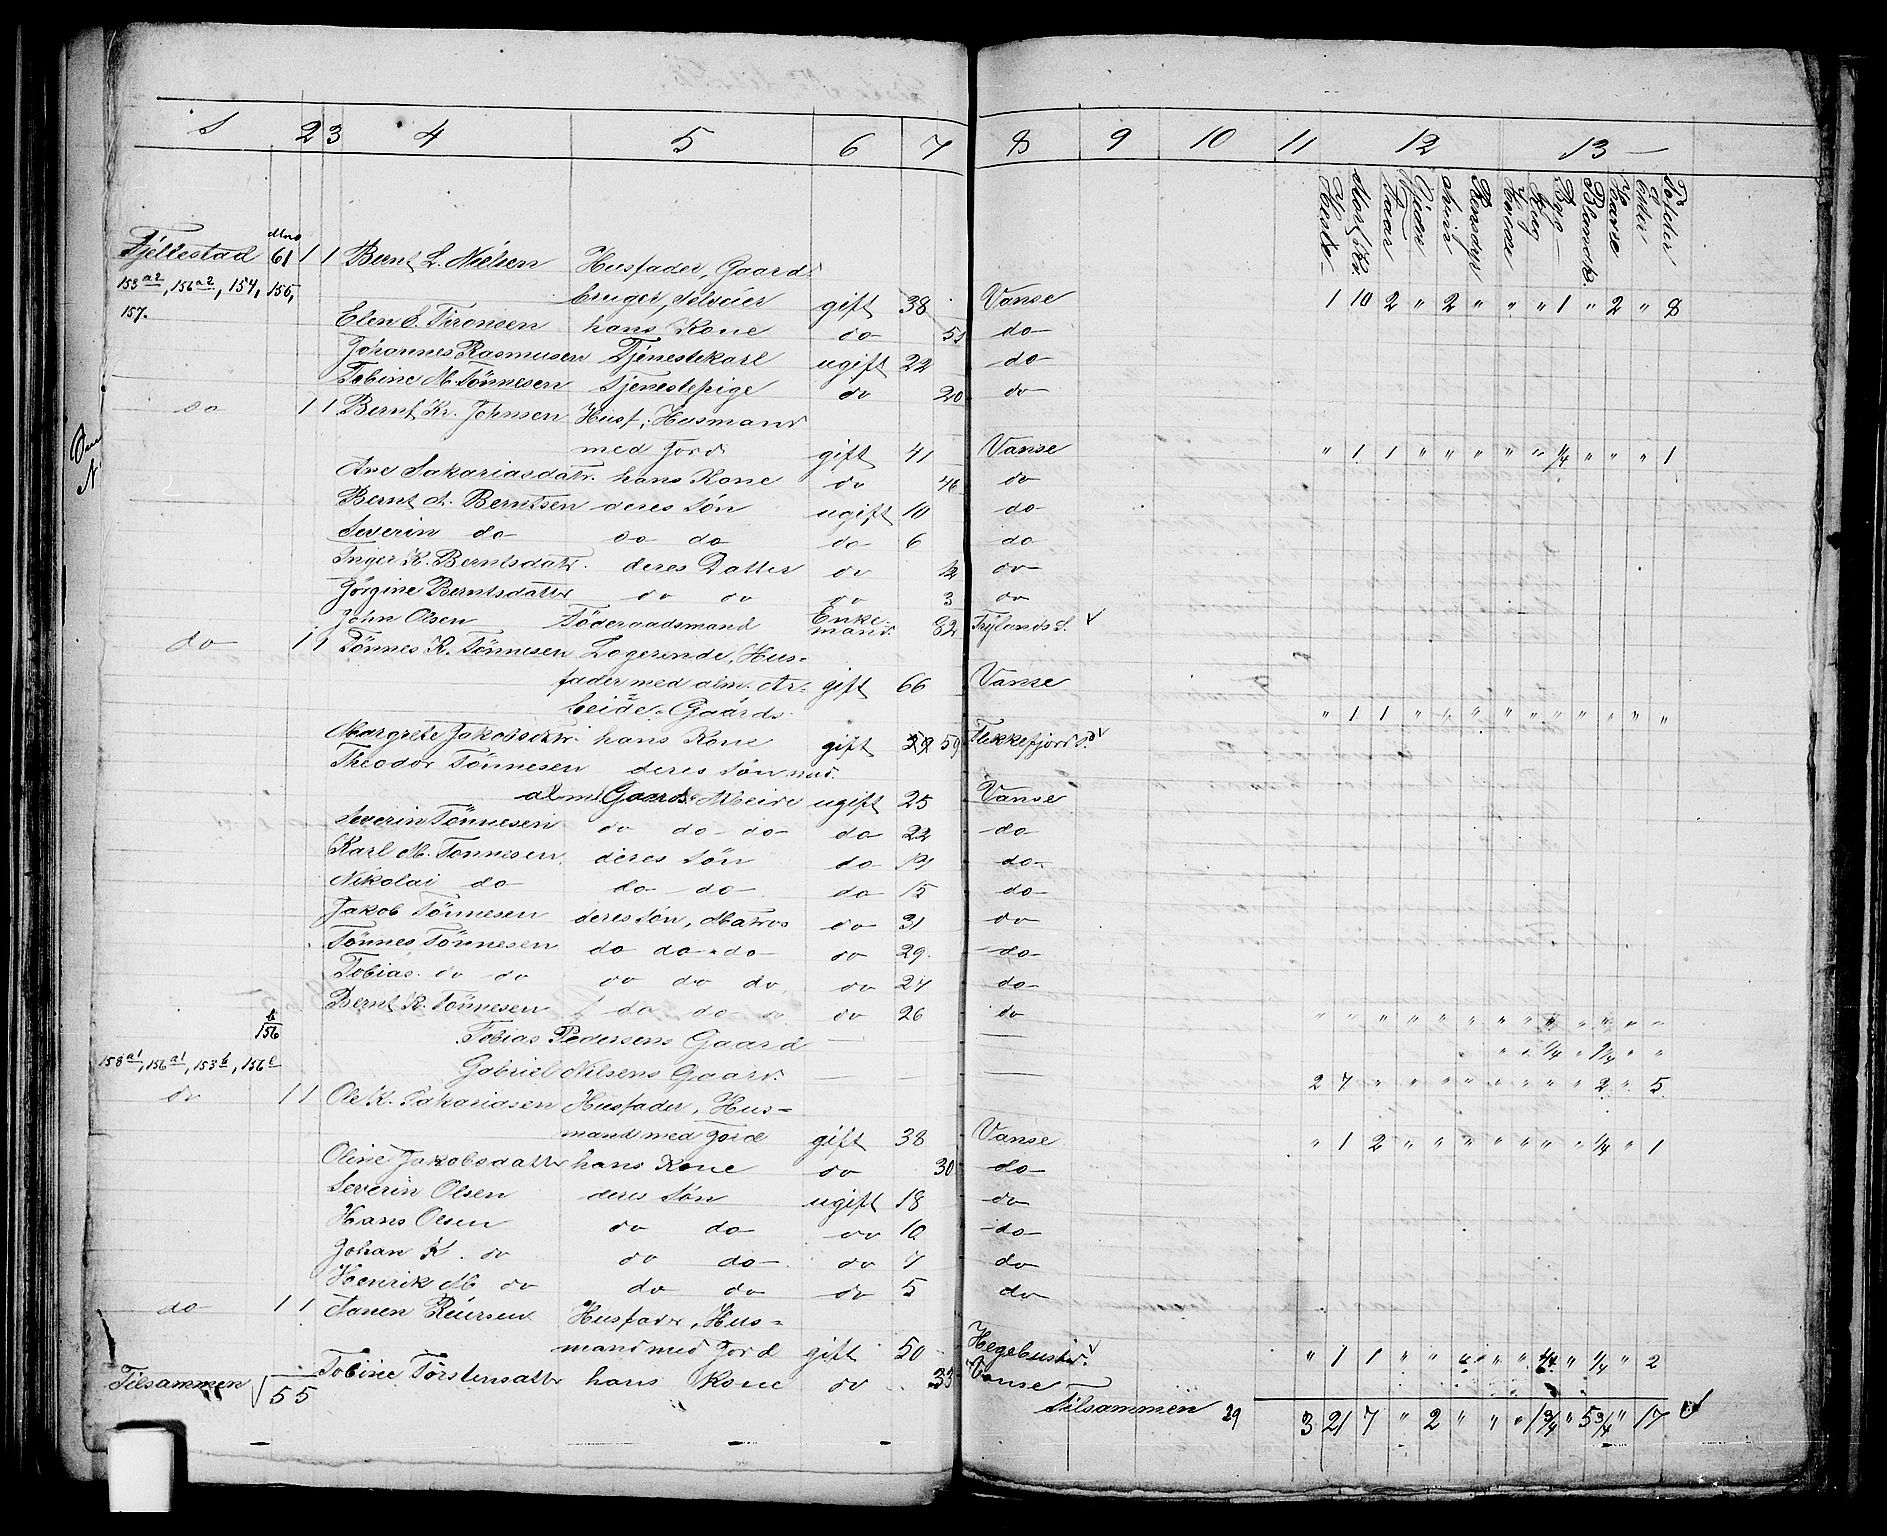 1 2 3 4 5 6 7 8 9 10 11 12 13
Heste Storf. Kv. Faar Gjeder Sviin Rensdyr Hvede Rug Byg Blandk. Havre Erter Poteter
Fjellestad Mno 61 1 1 Bernt L. Nielsen Husfader, Gaard-
153 a2, 156 a2, 154, 155, bruger, Selveier gift 38 Vanse 1 10 2 " 2 " " " 1 " 2 " 8
157. Elen E. Tironsen hans Kone do 51 do
Johannes Rasmusen Tjenestekarl ugift 22 do
Tobine M. Tönnesen Tjenestepige do 20 do
do 1 1 Bernt Kr. Johnsen Husf, Husmand
med Jord gift 41 Vanse " 1 1 " " " " " 1/4 " " " 1
Ane Sakariasdatr. hans Kone do 46 do
Bernt A. Berntsen deres Søn ugift 10 do
Severin do do do do 6 do
Inger K. Berntsdatr. deres Datter do 12 do
Jörgine Berntsdatter do do do 3 do
John Olsen Föderaadsmand Enke-
mand 82 Frylands S. v
do 1 1 Tönnes K. Tönnesen Logerende, Hus-
fader med alm. Ar- gift 66 Vanse
beide Gaards " 1 1 " " " " " " " " " "
Margrete Jakobsdtr. hans Kone gift 59 Flekkefjord S. v
Theodor Tönnesen deres Søn med
alm Gaards Arbeide ugift 25 Vanse
Severin Tönnesen do do do do 22 do
Karl M. Tönnesen deres Søn do 19 do
Nikolai do do do do 15 do
Jakob Tönnesen deres Søn, Matros do 31 do
Tönnes Tönnesen do do do do 29 do
Tobias do do do do do do 27 do
Bernt K. Tönnesen do do do do 26 do
156 b Tobias Pedersens Gaard — 1/4
158 a1, 156 a1, 153 b, 156 c Gabriel Nilsens Gaard. — 2 7 " " " " " " " " 2 " 5
do 1 1 Ole K. Sakariasen Husfader, Hus-
mand med Jord gift 38 Vanse " 1 2 " " " " " " " 1/4 " 1
Oline Jakobsdatter hans Kone do 30 do
Severin Olsen deres Søn ugift 18 do
Hans Olsen do do do 10 do
Johan K. do do do do 7 do
Henrik M. do do do do 5 do
do 1 1 Husfader, Hus-
mand med Jord gift 50 Hegebustd. v " 1 1 " " " " " 1/4 " 1/4 " 2
Tobine Torstensdatter hans Kone do 33 Vanse
Tilsammen 55 Tilsammen 29 3 21 7 " 2 " " " 1 3/4 " 5 3/4 " 17